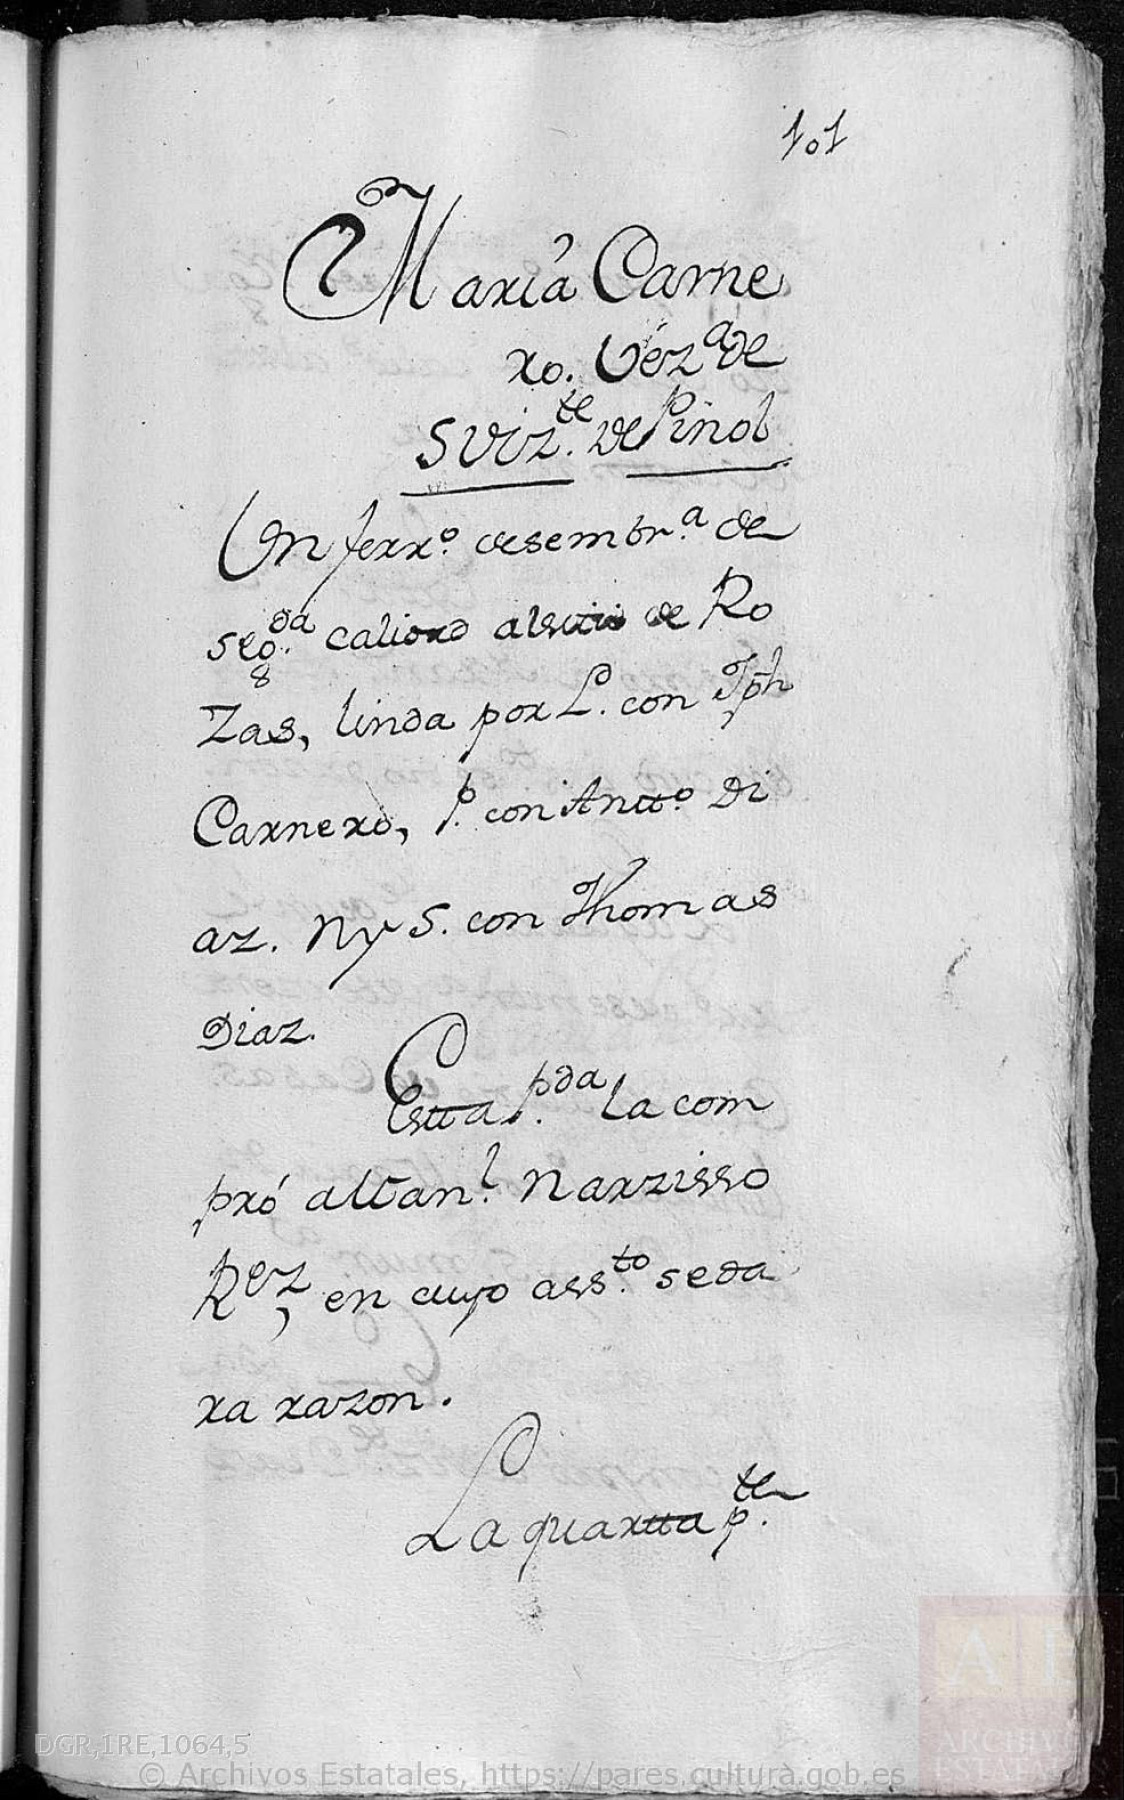 101
Maria Carne
ro. Véz.ª de
S Viz.te de Pinol
Un ferr.º desembr.ª de
seg.da calidd alsitio de Ro
zas, linda por L. con Jph
Carnero, P. con Antt.º Di
az. N y S. con Thomas
Diaz.
Estta p.da la com
pró al Can.l Narzisso
Rez, en cuyo ass.to se da
ra razon.
La quartta p.te
DGR,1RE,1064,5
© Archivos Estatales, https://pares.cultura.gob.es
A E
ARCHIVOS
ESTATALES